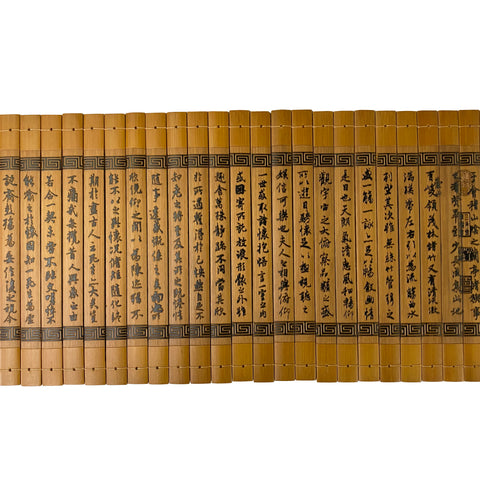 會稽山陰之蘭亭脩稧事
也羣賢畢至少長咸集此地
有崇山峻領茂林脩竹又有清流激
湍暎帶左右引以為流觴曲水
列坐其次雖無絲竹管弦之
盛一觴一詠亦足以暢敘幽情
是日也天朗氣清惠風和暢仰
觀宇宙之大俯察品類之盛
所以遊目騁懷足以極視聽之
娛信可樂也夫人之相與俯仰
一世或取諸懷抱悟言一室之內
或因寄所託放浪形骸之外雖
趣舍萬殊靜躁不同當其欣
於所遇蹔得於己怏然自足不
知老之將至及其所之既惓情
隨事遷感慨係之矣向之所
欣俛仰之間以為陳迹猶不
能不以之興懷況脩短隨化終
期於盡古人云死生亦大矣豈
不痛哉每攬昔人興感之由
若合一契未嘗不臨文嗟悼不
能喻之於懷固知一死生為虛
誕齊彭殤為妄作後之視今